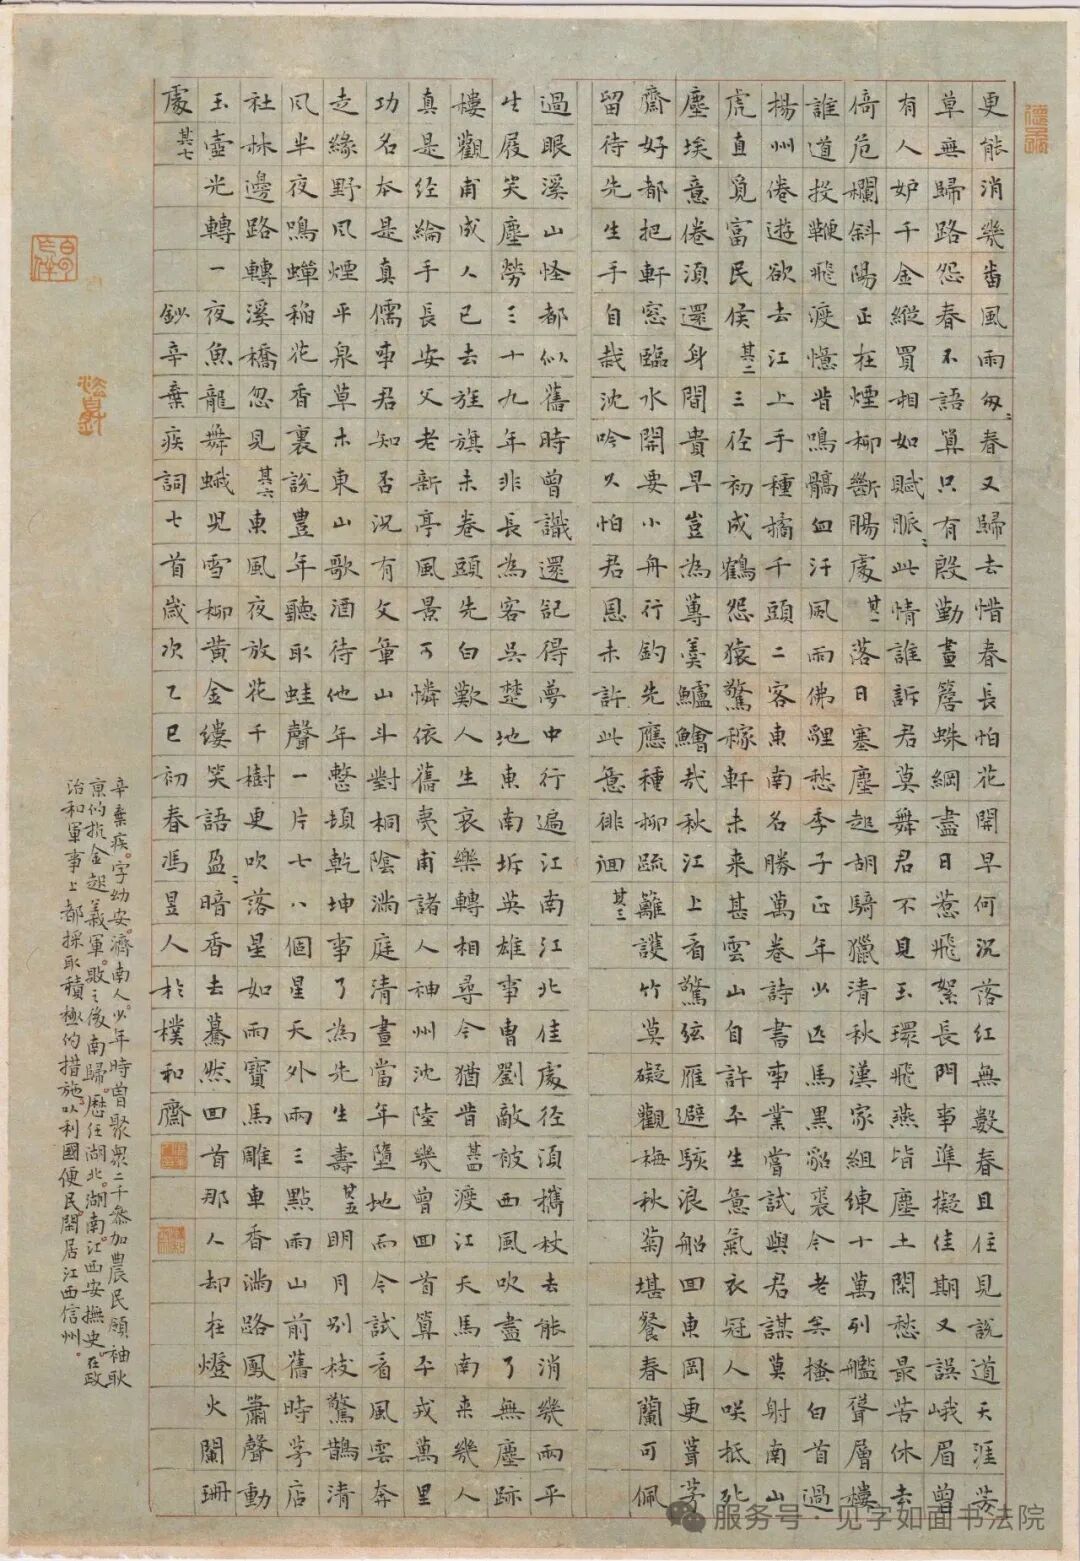 更能消幾畨風雨匆〻春又歸去惜春長怕花開早何況落紅無數春且住見説道天涯芳
草無歸路怨春不語算只有殷勤畫簷蛛網盡日惹飛絮長門事準擬佳期又誤峨眉曾
有人妒千金縱買相如賦脈〻此情誰訴君莫舞君不見玉環飛燕皆塵土閑愁最苦休去
倚危欄斜陽正在煙柳斷腸處其一落日塞塵起胡騎獵清秋漢家組練十萬列艦聳層樓
誰道投鞭飛渡憶昔鳴髇血汙風雨佛貍愁季子正年少匹馬黑貂裘今老矣搔白首過
揚州倦遊欲去江上手種橘千頭二客東南名勝萬卷詩書事業嘗試與君謀莫射南山
虎直覓富民侯其二三徑初成鶴怨猿驚稼軒未來甚雲山自許平生意氣衣冠人咲抵死
塵埃意倦須還身閒貴早豈為蓴羹鱸鱠哉秋江上看驚弦雁避駭浪船回東岡更葺茅
齋好都把軒窓臨水開要小舟行釣先應種柳疏籬護竹莫礙觀梅秋菊堪餐春蘭可佩
留待先生手自栽沈吟久怕君恩未許此意徘徊其三
過眼溪山怪都似舊時曾識還記得夢中行遍江南江北佳處徑須攜杖去能消幾兩平
生屐笑塵勞三十九年非長為客吳楚地東南坼英雄事曹劉敵被西風吹盡了無塵跡
樓觀甫成人已去旌旗未卷頭先白歎人生哀樂轉相尋今猶昔其四渡江天馬南來幾人
真是經綸手長安父老新亭風景可憐依舊夷甫諸人神州沈陸幾曾回首算平戎萬里
功名本是真儒事君知否況有文章山斗對桐陰滿庭清晝當年墮地而今試看風雲奔
走綠野風煙平泉草木東山歌酒待他年整頓乾坤事了為先生壽其五明月別枝驚鵲清
風半夜鳴蟬稻花香裏説豐年聽取蛙聲一片七八個星天外雨三點雨山前舊時茅店
社林邊路轉溪橋忽見其六東風夜放花千樹更吹落星如雨寶馬雕車香滿路鳳簫聲動
玉壺光轉一夜魚龍舞蛾兒雪柳黃金縷笑語盈〻暗香去驀然回首那人却在燈火闌珊
處其七 鈔辛棄疾詞七首歲次乙巳初春馮昱人於樸和齋
辛棄疾。字幼安。濟南人。少年時曾聚衆二千參加農民領袖耿
京的抗金起義軍。敗之後南歸。歷任湖北。湖南。江西安撫史。在政
治和軍事上都採取積極的措施。以利國便民閑居江西信州。
服务号·见字如面书法院